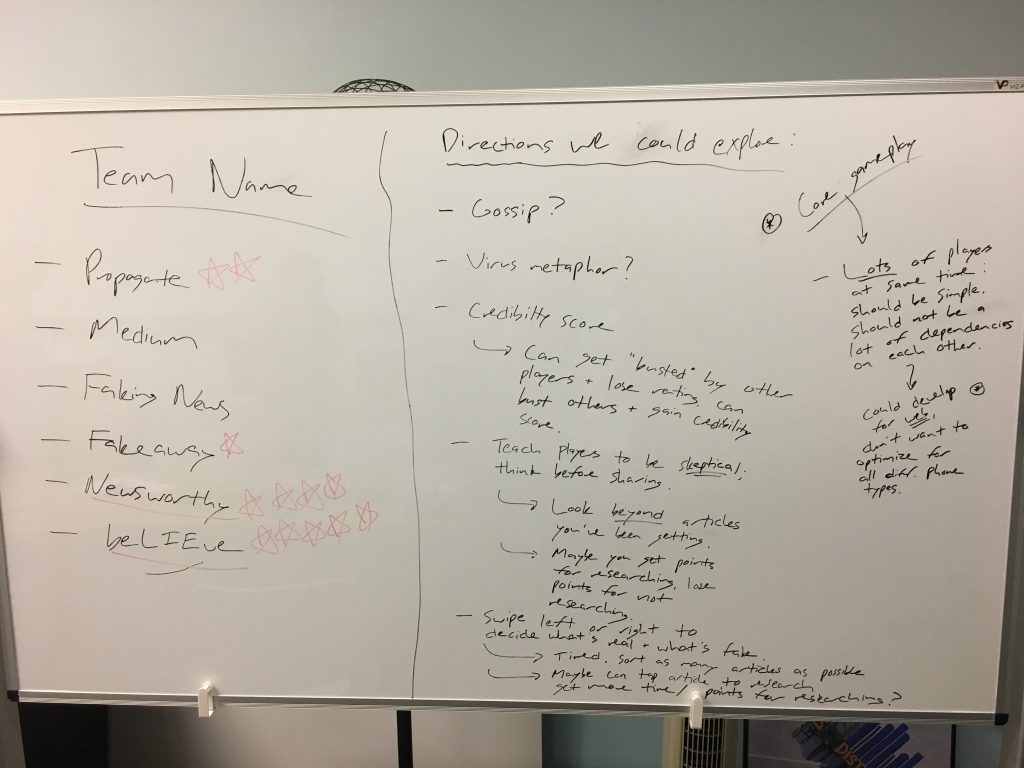 Team Name
- Propagate ☆☆
- Medium
- Faking News
- Fakeaway ☆
- Newsworthy ☆☆☆☆
- beLIEve ☆☆☆☆☆
Directions we could exploe:
- Gossip?
- Virus metaphor?
- Credibility score
→ Can get "busted" by other
players + lose rating, can
bust others + gain credibility
score.
- Teach players to be skeptical;
think before sharing.
→ Look beyond articles
you've been getting.
→ Maybe you get points
for researching, lose
points for not
researching
- Swipe left or right to
decide what's real + what's fake.
→ Timed, sort as many articles as possible
→ Maybe can tap article to research
get more time / points for researching?
Core gameplay
- Lots of players
at same time:
should be simple,
should not be a
lot of dependencies
on each other.
Could develop
for web,
don't want to
optimize for
all diff. phone
types.
DIST